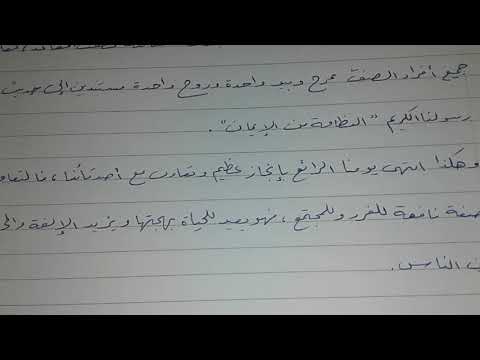 جميع أفراد الصف بمرح وبيد واحدة وروح واحدة مستندين إلى حديث
رسولنا الكريم "النظافة من الإيمان".
وهكذا انتهى يومنا الرائع بإنجاز عظيم وتعاون مع أصدقائنا، فالتعاو
صفة نافعة للفرد وللمجتمع، فهو يعيد للحياة بهجتها ويزيد الإلفة والم
ن الناس.